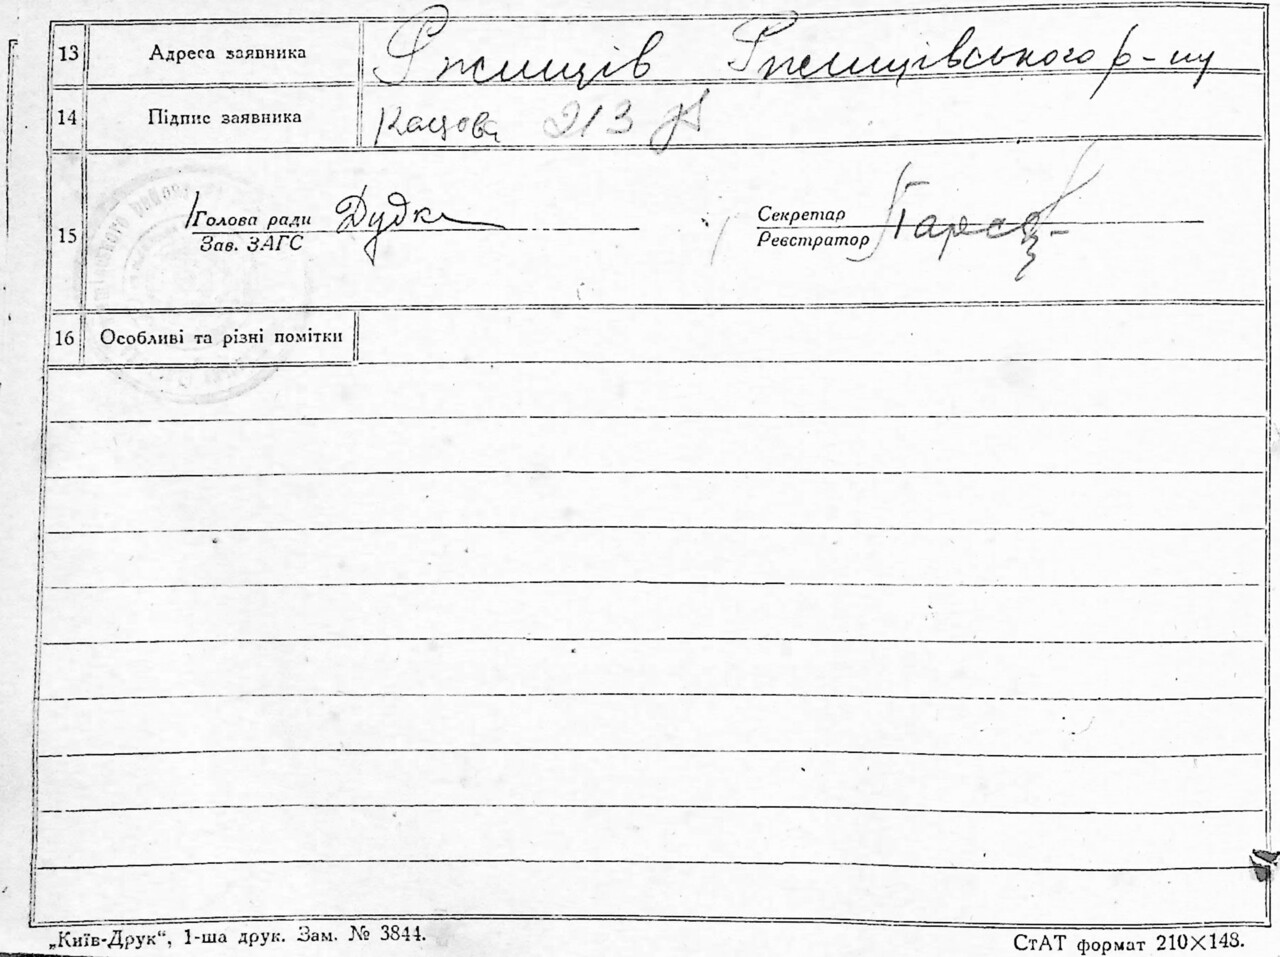 13 Адреса заявника Ржищів Ржищівського р-ну
14 Підпис заявника Кацова 213
15 Голова ради Дудка Секретар
Зав. ЗАГС Реєстратор
16 Особливі та різні помітки
„Київ-Друк“, 1-ша друк. Зам. № 3844. СтАТ формат 210×148.